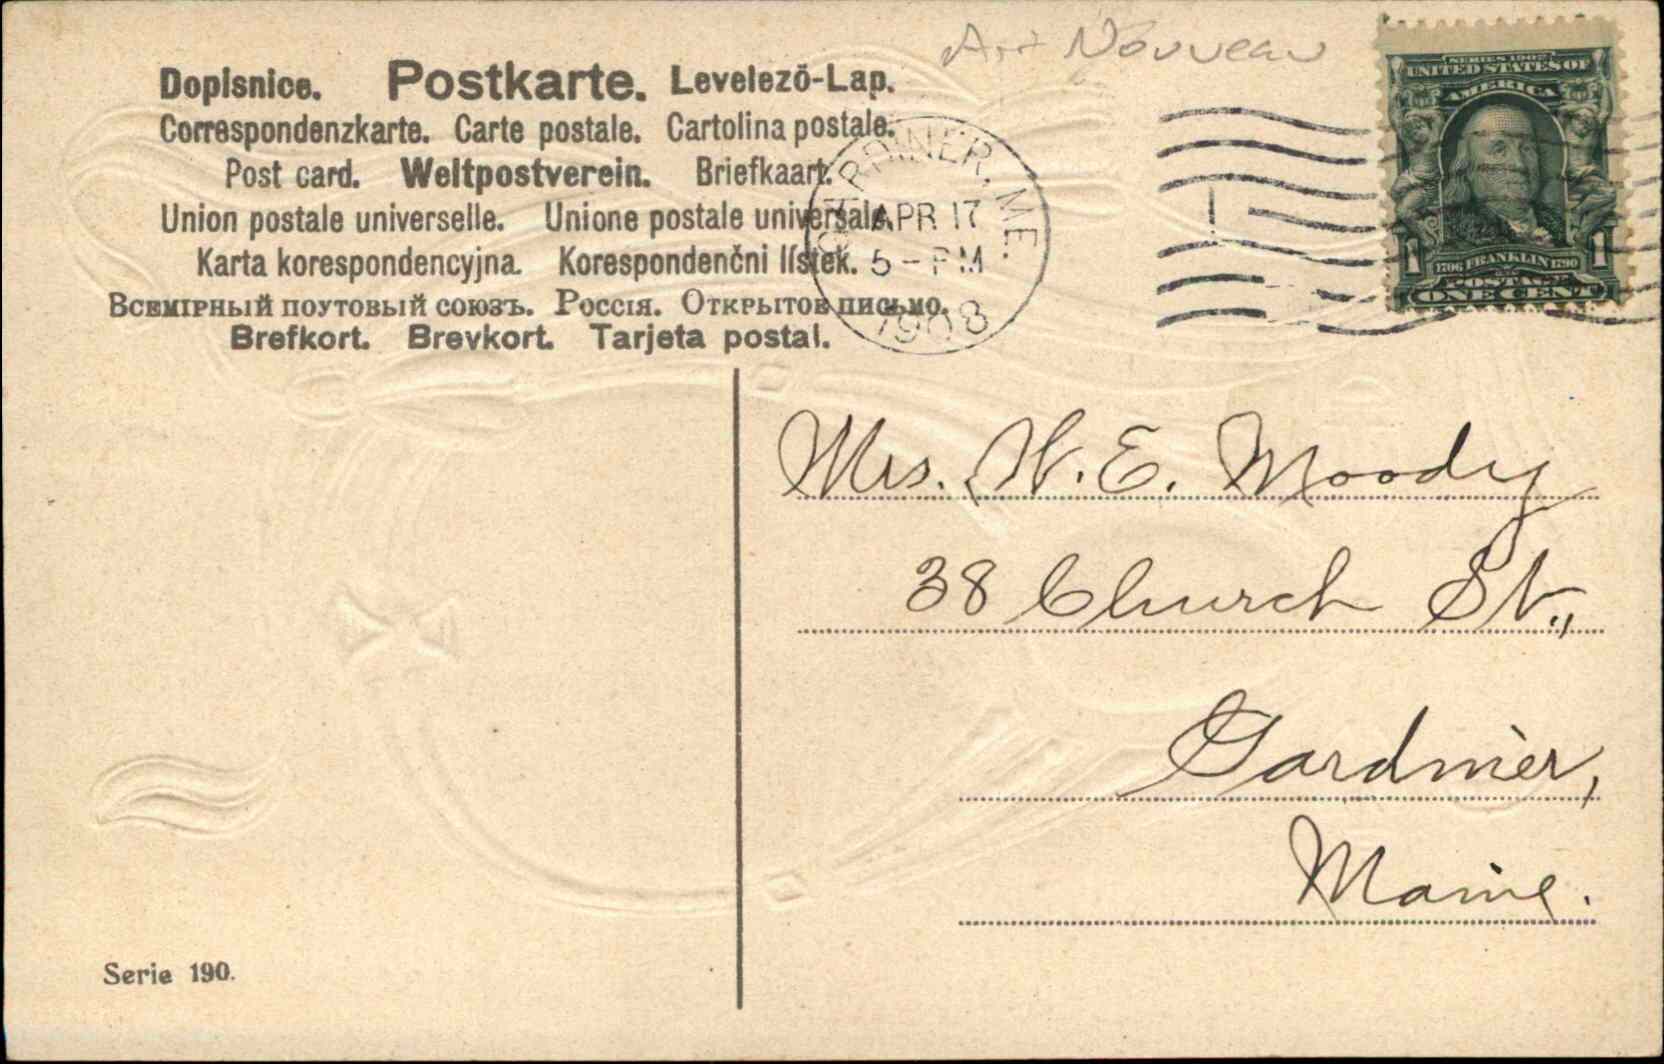 Art Nouveau
SERIES 1902
UNITED STATES OF
AMERICA
1706 FRANKLIN 1790
POSTAGE
1 1
ONE CENT
Dopisnice. Postkarte. Levelezö-Lap.
Correspondenzkarte. Carte postale. Cartolina postale.
Post card. Weltpostverein. Briefkaart.
Union postale universelle. Unione postale universale.
Karta korespondencyjna. Korespondenčni lístek.
Всемірный поутовый союзъ. Россія. Открытое письмо.
Brefkort. Brevkort. Tarjeta postal.
GARDINER, ME.
APR 17
5 - PM
1908
Mrs. W. E. Moody
38 Church St.,
Gardiner,
Maine.
Serie 190.